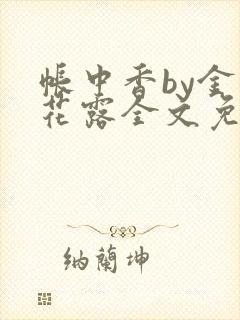 帳中香by金
花露全文免
納蘭坤